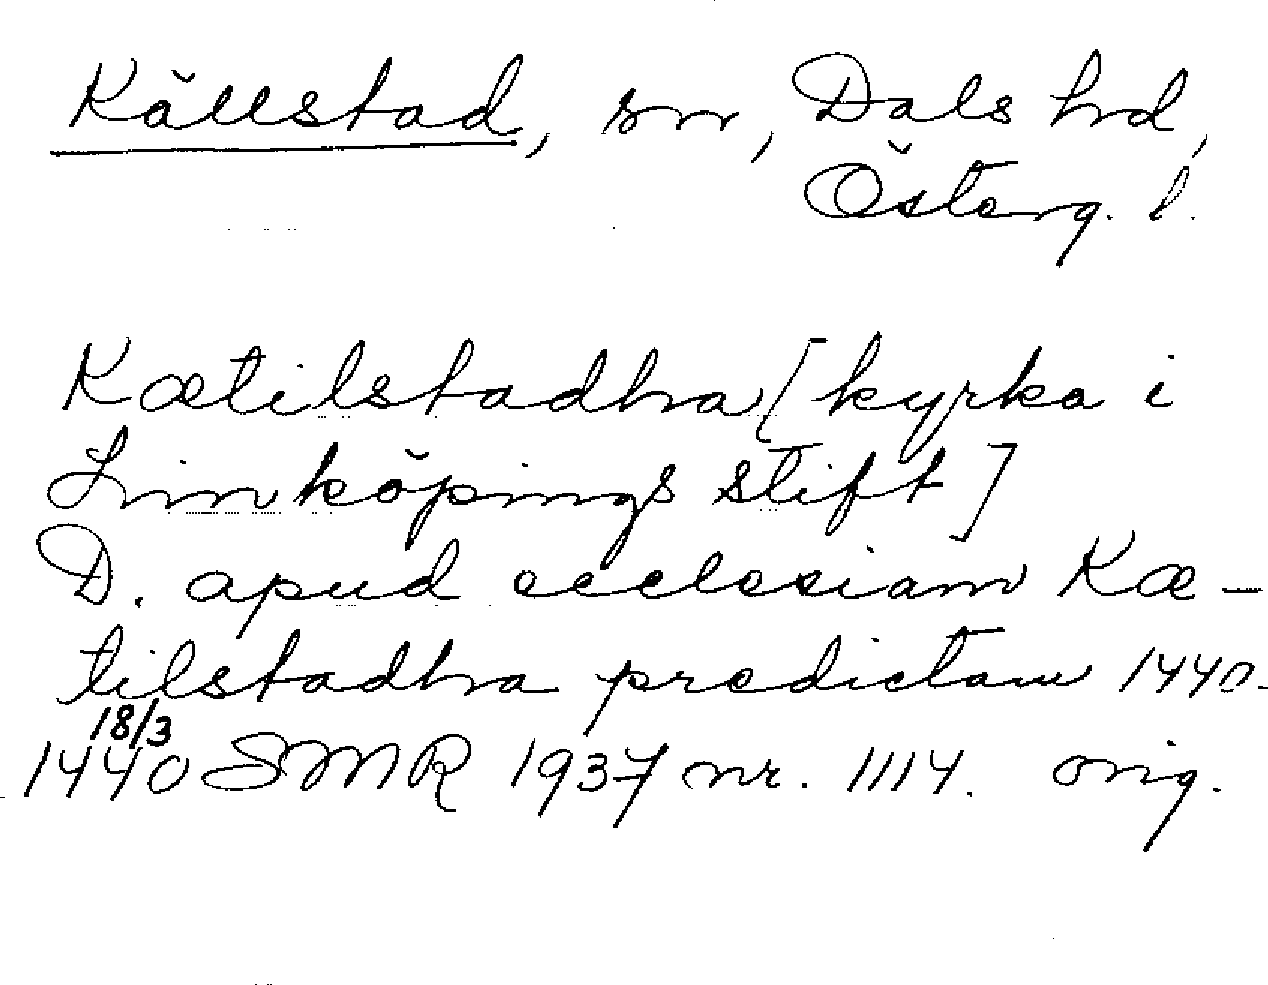 Källstad, sn, Dals hd,
Österg. l.
Kætilstadha [kyrka i
Linköpings stift]
D. apud ecclesiam Kæ-
tilstadha predictam 1440.
18/3
1440 SMR 1937 nr. 1114. orig.